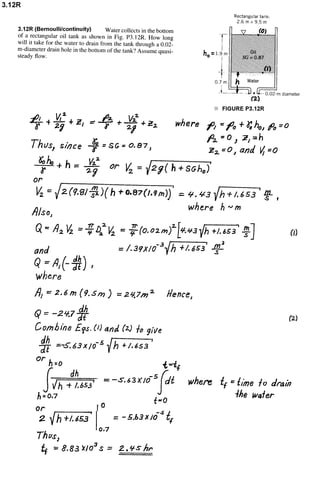 3.12R
3.12R (Bernoulli/continuity) Water collects in the bottom
of a rectangular oil tank as shown in Fig. P3.12R. How long
will it take for the water to drain from the tank through a 0.02-
m-diameter drain hole in the bottom of the tank? Assume quasi-
steady flow.
Rectangular tank:
2.6 m × 9.5 m
(0)
h₀ = 1.9 m
Oil
SG = 0.87
(1)
0.7 m
h
Water
0.02-m diameter
(2)
FIGURE P3.12R
p₁/γ + V₁²/2g + z₁ = p₂/γ + V₂²/2g + z₂ where p₁ = p₀ + γ₀h₀, p₀ = 0
p₂ = 0, z₁ = h
Thus, since γ₀/γ = SG = 0.87, z₂ = 0, and V₁ = 0
γ₀h₀/γ + h = V₂²/2g or V₂ = √2g(h + SGh₀)
or
V₂ = √2(9.81 m/s²)(h + 0.87(1.9m)) = 4.43 √h + 1.653 m/s,
where h ~ m
Also,
Q = A₂V₂ = π/4 D₂² V₂ = π/4 (0.02m)² [4.43 √h + 1.653 m/s] (1)
and = 1.39×10⁻³ √h + 1.653 m³/s
Q = A₁(-dh/dt),
where
A₁ = 2.6m (9.5m) = 24.7m² Hence,
Q = -24.7 dh/dt (2)
Combine Eqs. (1) and (2) to give
dh/dt = -5.63×10⁻⁵ √h + 1.653
or
h=0 t=t_f
∫ dh/√h + 1.653 = -5.63×10⁻⁵ ∫dt where t_f = time to drain
h=0.7 t=0 the water
or
2 √h + 1.653 |₀.₇⁰ = -5.63×10⁻⁵ t_f
Thus,
t_f = 8.83×10³ s = 2.45 hr